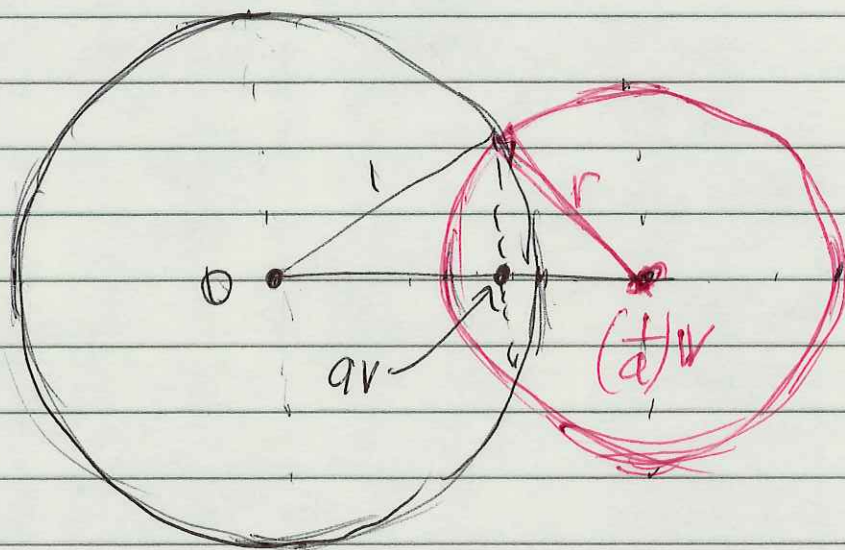 1
r
0
av
(1/a)v